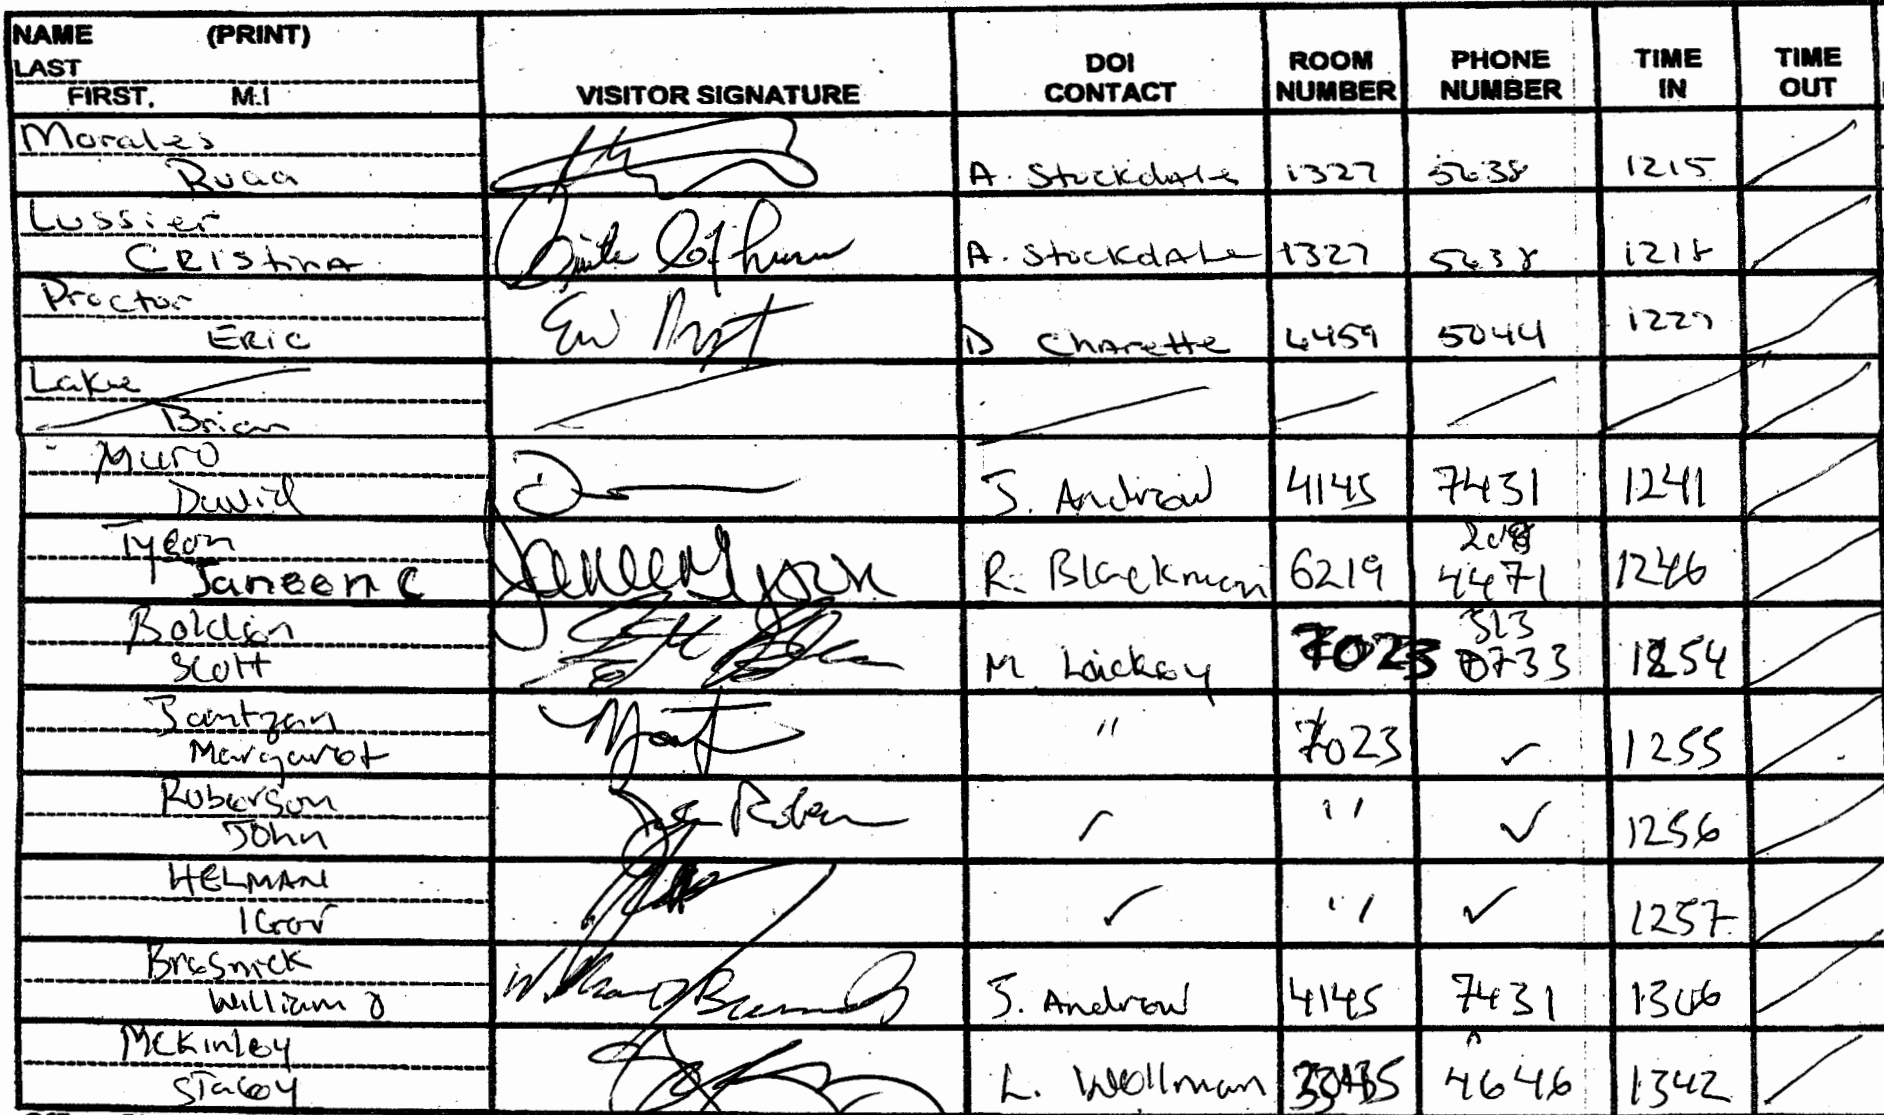 NAME (PRINT)
LAST
FIRST, M.I
VISITOR SIGNATURE
DOI
CONTACT
ROOM
NUMBER
PHONE
NUMBER
TIME
IN
TIME
OUT
Morales
A. Stockdale 1327 5638 1215
Lussier
Cristina
A. Stockdale 1327 5638 1218
Proctor
Eric
D Charette 5044
Lake
Brian
Muro
David
J. Andrew 4145 7431 1241
Tyson
Janeen C
R. Blackman 6219 208
4471 1246
Scott
M. 7023 513
0733 1254
Jantzen
Margaret
" 7023 ✓ 1255
Roberson
John
✓ " ✓ 1256
HELMAN
Igor
✓ " ✓ 1257
William J
J. Andrew 4145 7431 1306
McKinley
Stacey
L. Wellman 4646 1342